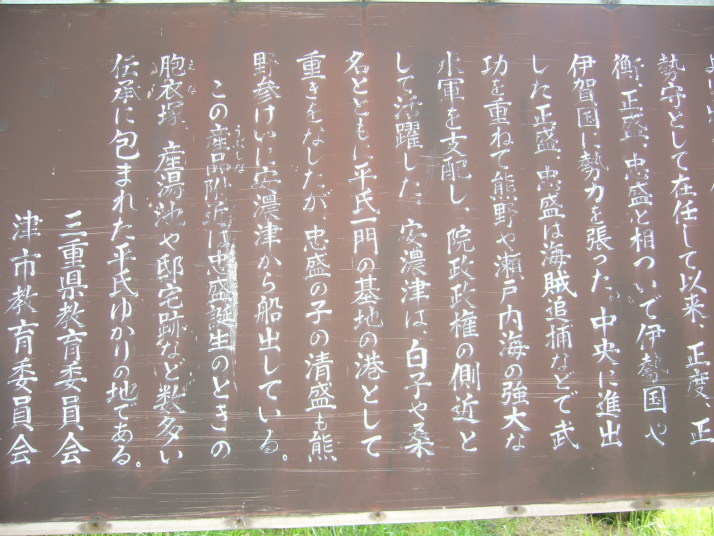 勢守として在任して以来、正度、正
衡、正盛、忠盛と相ついで伊勢国や
伊賀国に勢力を張った。中央に進出
した正盛、忠盛は海賊追捕などで武
功を重ねて熊野や瀬戸内海の強大な
水軍を支配し、院政政権の側近と
して活躍した。安濃津は、白子や桑
名とともに平氏一門の基地の港として
重きをなしたが、忠盛の子の清盛も熊
野参けいに安濃津から船出している。
この産品附近は忠盛誕生のときの
胞衣塚、産湯池や邸宅跡など数多い
伝承に包まれた平氏ゆかりの地である。
三重県教育委員会
津市教育委員会